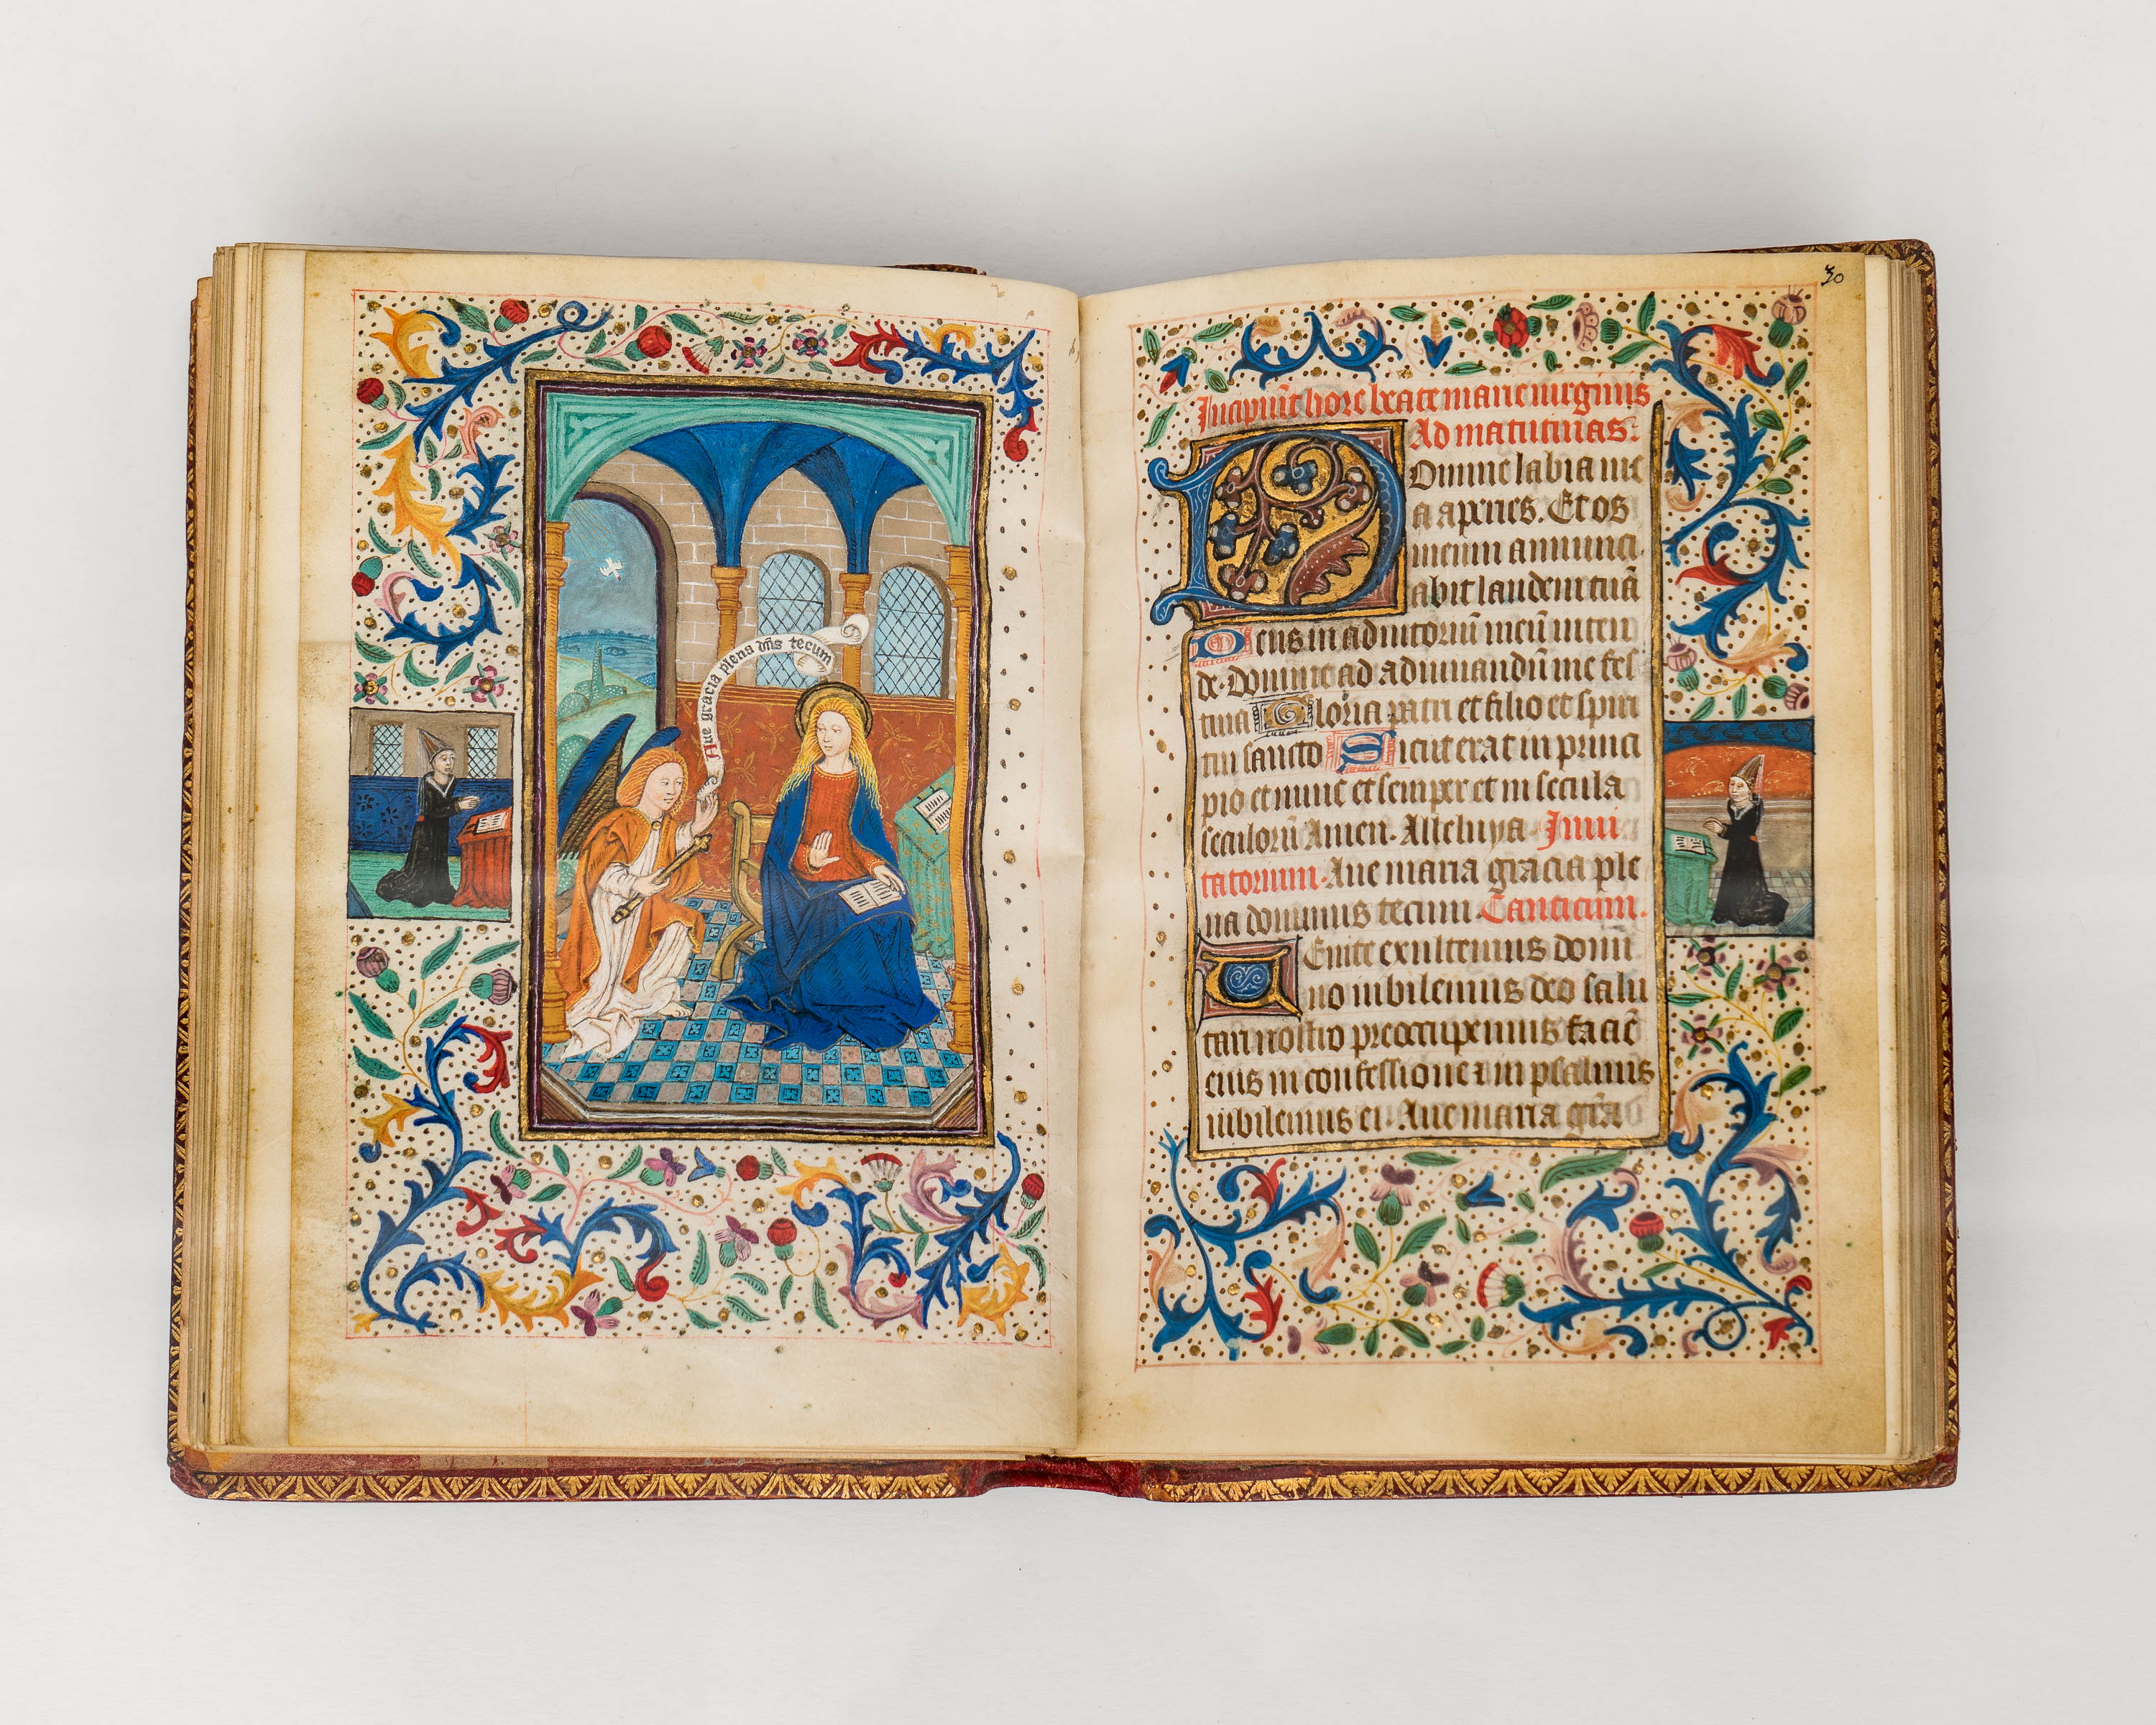 Aue gracia plena dn̄s tecum
30
Incipiūt hore beate marie uirginis
Ad matutinas:
Domine labia me
a aperies. Et os
meum annunci
abit laudem tuā
Deus in adiutoriū meū inten
de. Domine ad adiuuandū me fes
tina Gloria patri et filio et spiri
tui sancto Sicut erat in princi
pio et nunc et semper et in secula
seculorū Amen. Alleluya. Inui
tatorium. Aue maria gracia ple
na dominus tecum. Canticum.
Uenite exultemus domi
no iubilemus deo salu
tari nostro preoccupemus faciē
eius in confessione ⁊ in psalmis
iubilemus ei. Aue maria gr̄a